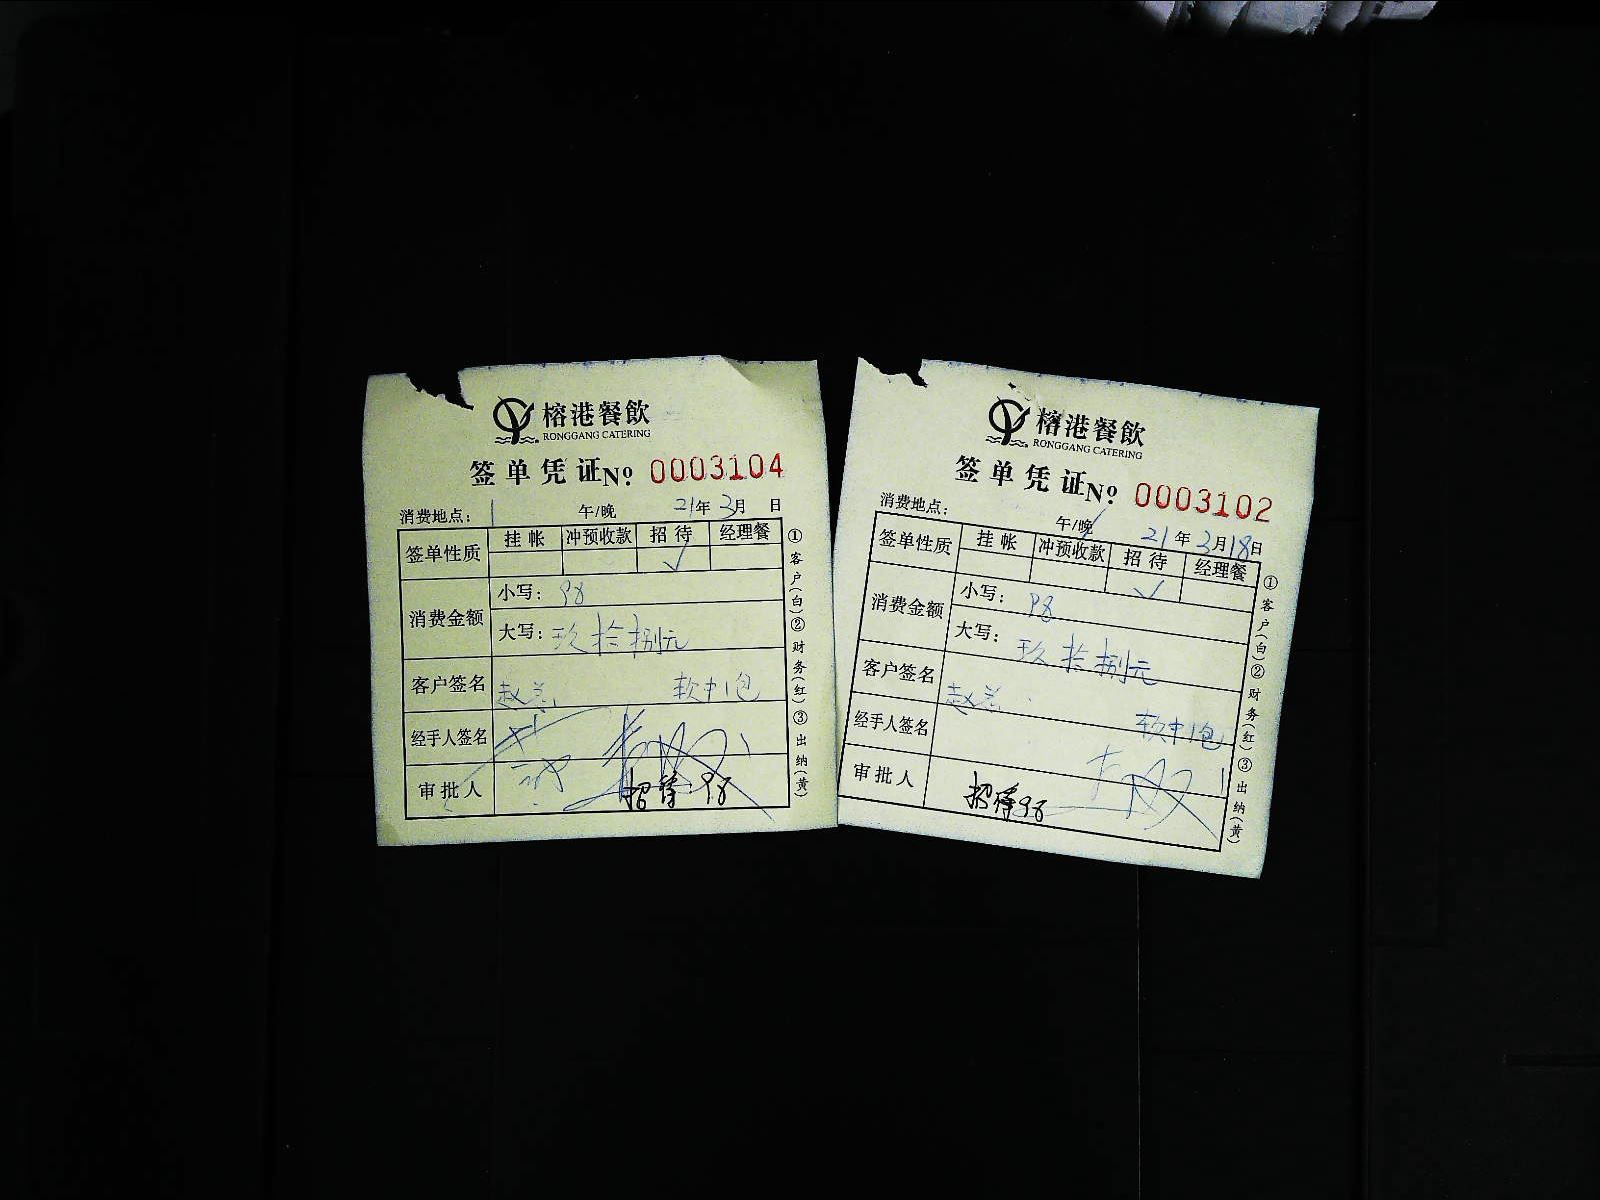 榕港餐飲
RONGGANG CATERING
签单凭证No: 0003104
消费地点: 午/晚 21年3月 日
签单性质 挂帐 冲预收款 招待 经理餐
✓
消费金额 小写: 98
大写: 玖拾捌元
客户签名 赵 软中1包
经手人签名
审批人 招待98
①客户(白)②财务(红)③出纳(黄)
榕港餐飲
RONGGANG CATERING
签单凭证No: 0003102
消费地点: 午/晚 21年3月18日
签单性质 挂帐 冲预收款 招待 经理餐
✓
消费金额 小写: 98
大写: 玖拾捌元
客户签名 赵 软中1包
经手人签名
审批人 招待98
①客户(白)②财务(红)③出纳(黄)